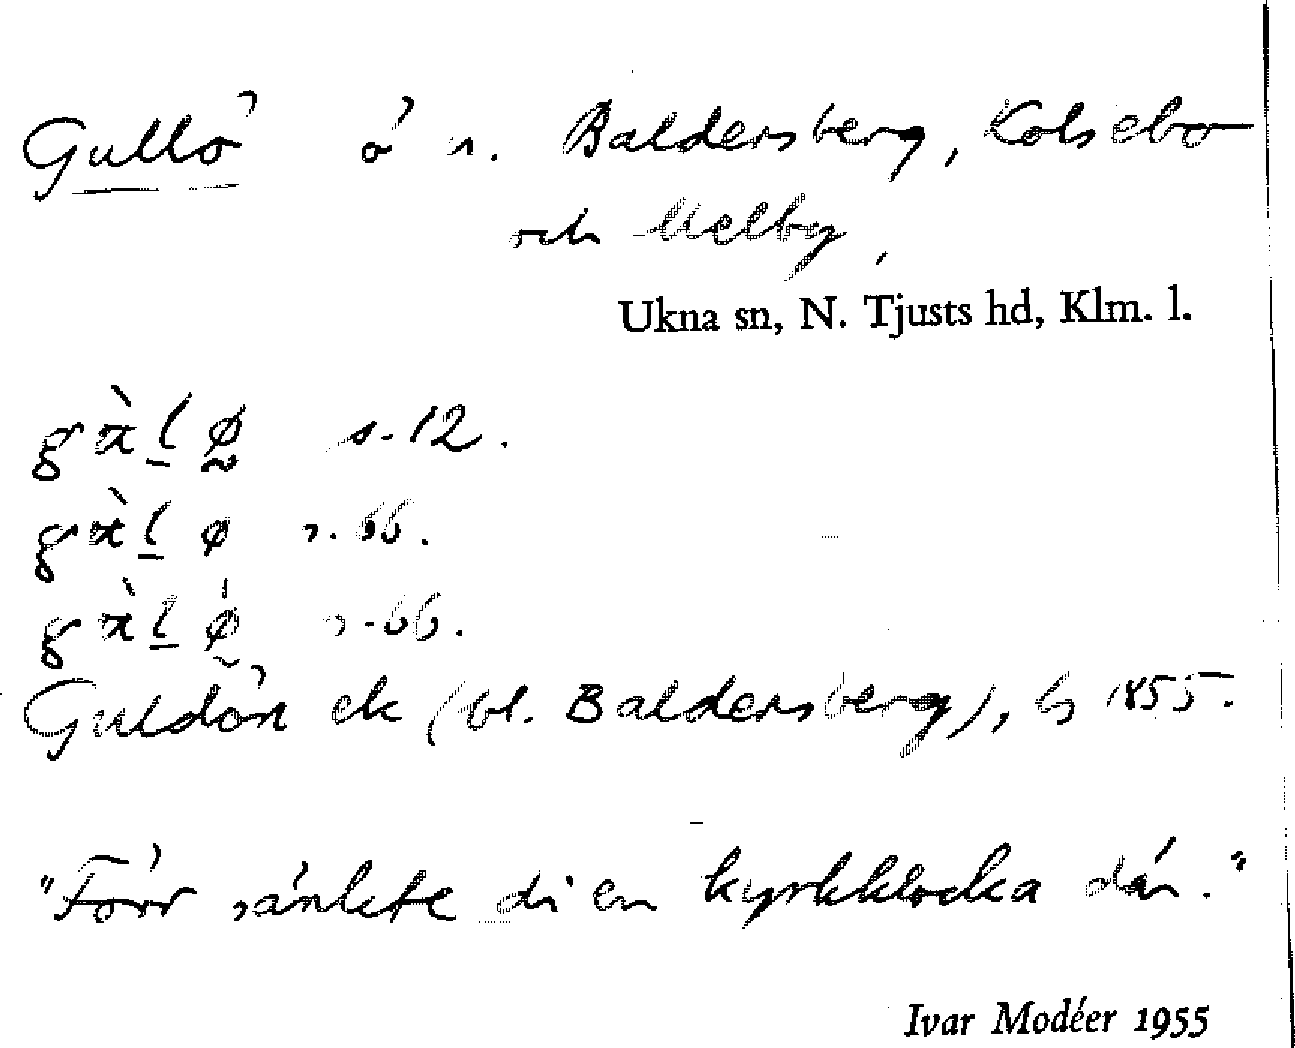 Gullö ö s. Baldersberg, Kolsebo
och Melby,
Ukna sn, N. Tjusts hd, Klm. l.
s. 12.
s. 66.
s. 66.
Guldön ek (bl. Baldersberg), ls 1855.
"Förr sänkte di en kyrkklocka där."
Ivar Modéer 1955